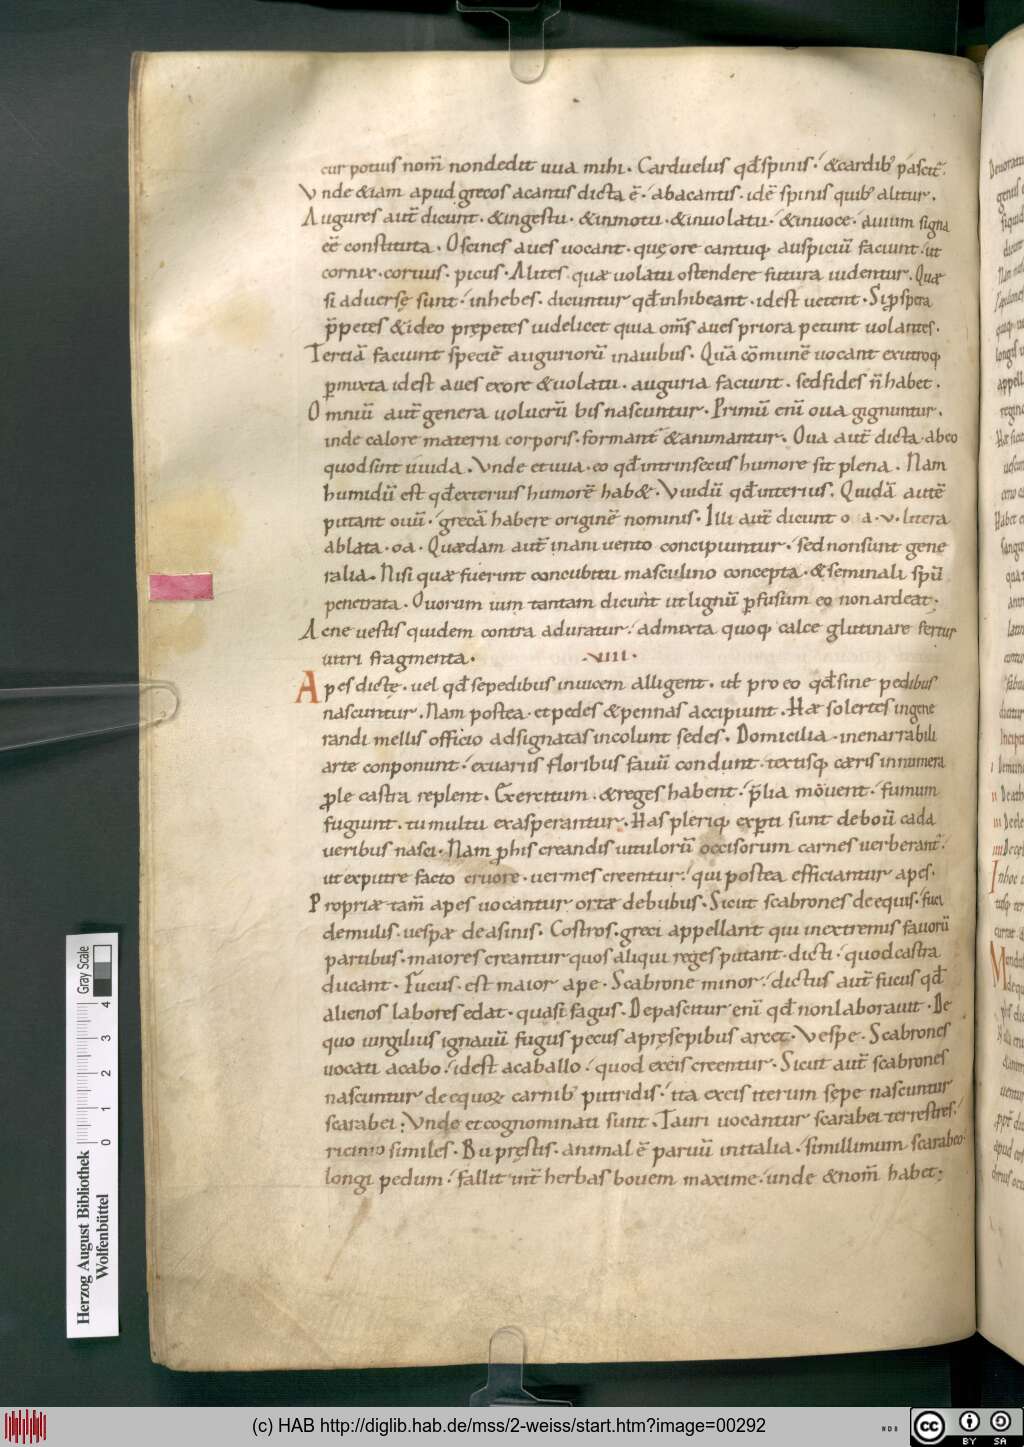 cur potius nom̄ nondedit uua mihi. Carduelus qđ spinis. &cardib; pascit̄.
Vnde &iam apud grecos acantis dicta ē. abacantis. idē spinis quib; alitur.
Augures aut̄ dicunt. &ingestu. &inmotu. &inuolatu. &inuoce. auium signa
eē constituta. Oscines aues uocant. quę ore cantuq; auspiciū faciunt. ut
cornix. coruus. picus. Alites quæ uolatu ostendere futura uidentur. Quæ
si aduersę sunt. inhebes. dicuntur qđ inhibeant. idest uetent. Si ꝓspera
p̄petes &ideo prępetes uidelicet quia om̄s aues priora petunt uolantes.
Tertiā faciunt speciē auguriorū inauibus. Quā cōmunē uocant exutroq;
ꝑmixta idest aues exore &uolatu. auguria faciunt. sed fides n̄ habet.
Omniū aut̄ genera uolucrū bis nascuntur. Primū enī oua gignuntur.
inde calore materni corporis. formant̄ &animantur. Oua aut̄ dicta. abeo
quod sint uuida. Vnde et uua. eo qđ intrinsecus humore sit plena. Nam
humidū est qđ exterius humorē hab&. Vuidū qđ interius. Quidā autē
putant ouū. grecā habere originē nominis. Illi aut̄ dicunt o a. v. litera
ablata. oa. Quædam aut̄ inani uento concipiuntur. sed non sunt gene
ralia. Nisi quæ fuerint concubitu masculino concepta. &seminali spū
penetrata. Ouorum uim tantam dicunt ut lignū ꝑfusum eo non ardeat.
Ac ne uestis quidem contra aduratur. admixta quoq; calce glutinare fertur
uitri fragmenta. .VIII.
Apes dictę. uel qđ se pedibus inuicem alligent. ut̄ pro eo qđ sine pedibus
nascuntur. Nam postea. et pedes &pennas accipiunt. Hæ solertes ingene
randi mellis officio adsignatas incolunt sedes. Domicilia. inenarrabili
arte conponunt. ex uariis floribus fauū condunt. textisq; cæris innumera
ꝓle castra replent. Exercitum. &reges habent. p̄lia mouent. fumum
fugiunt. tumultu exasperantur. Has pleriq; exꝑti sunt de boū cada
ueribus nasci. Nam ꝓ his creandis uitulorū occisorum carnes uerberant̄.
ut ex putre facto cruore. uermes creentur. qui postea efficiantur apes.
Propriæ tam̄ apes uocantur ortæ de bubus. Sicut scabrones de equis. fuci
de mulis. uespæ de asinis. Costros. greci appellant qui in extremis fauorū
partibus. maiores creantur quos aliqui reges putant. dicti. quod castra
ducant. Fucus. est maior ape. Scabrone minor. dictus aut̄ fucus qđ
alienos labores edat. quasi fagus. Depascitur enī qđ non laborauit. De
quo uirgilius ignauū fugus pecus apręsepibus arcet. Vespe. Scabrones
uocati acabo. idest acaballo. quod ex eis creentur. Sicut aut̄ scabrones
nascuntur de equoꝝ carnib; putridis. ita ex eis iterum sępe nascuntur
scarabei: Vnde et cognominati sunt. Tauri uocantur scarabei terrestres.
ricinio similes. Bupręstis. animal ē paruū in italia. simillimum scarabeo
longi pedum. fallit int̄ herbas bouem maxime. unde &nom̄ habet;
Herzog August Bibliothek
Wolfenbüttel
Gray Scale
0 1 2 3 4
(c) HAB http://diglib.hab.de/mss/2-weiss/start.htm?image=00292
cc BY SA